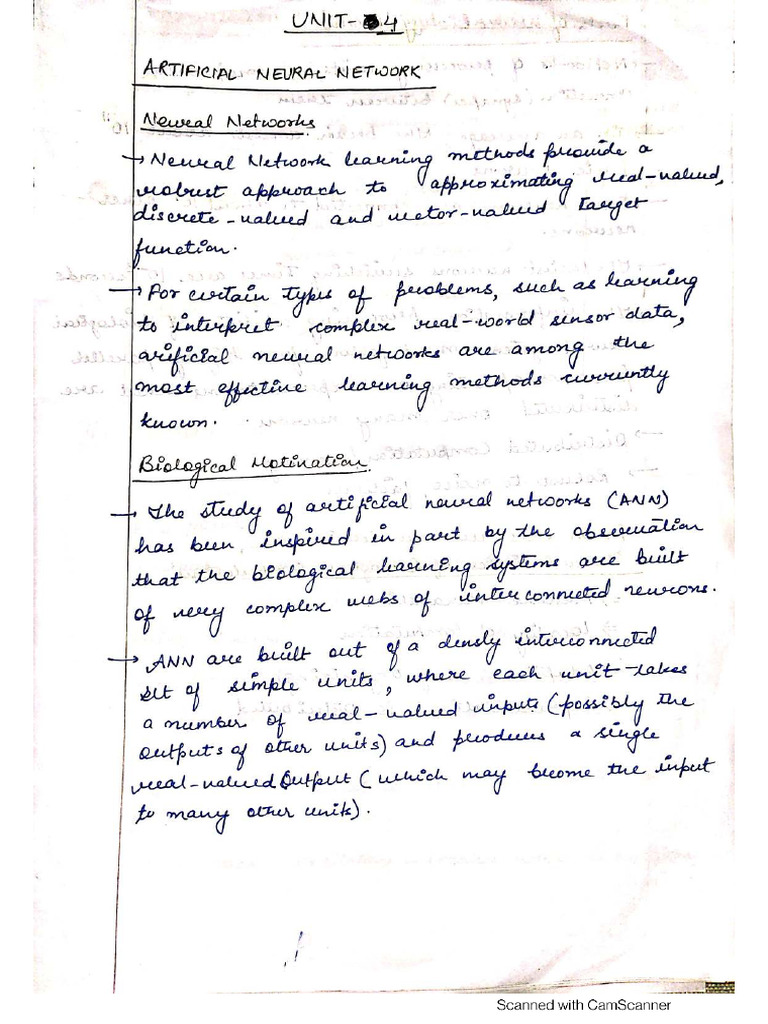 UNIT-4
ARTIFICIAL NEURAL NETWORK
Neural Networks
→ Neural Network learning methods provide a
robust approach to approximating real-valued,
discrete-valued and vector-valued target
function.
→ For certain types of problems, such as learning
to interpret complex real-world sensor data,
arificial neural networks are among the
most effective learning methods currently
known.
Biological Motivation.
→ The study of artificial neural networks (ANN)
has been inspired in part by the observation
that the biological learning systems are built
of very complex webs of interconnected neurons.
→ ANN are built out of a densly interconnected
set of simple units, where each unit takes
a number of real-valued inputs (possibly the
outputs of other units) and produces a single
real-valued output (which may become the input
to many other units).
Scanned with CamScanner